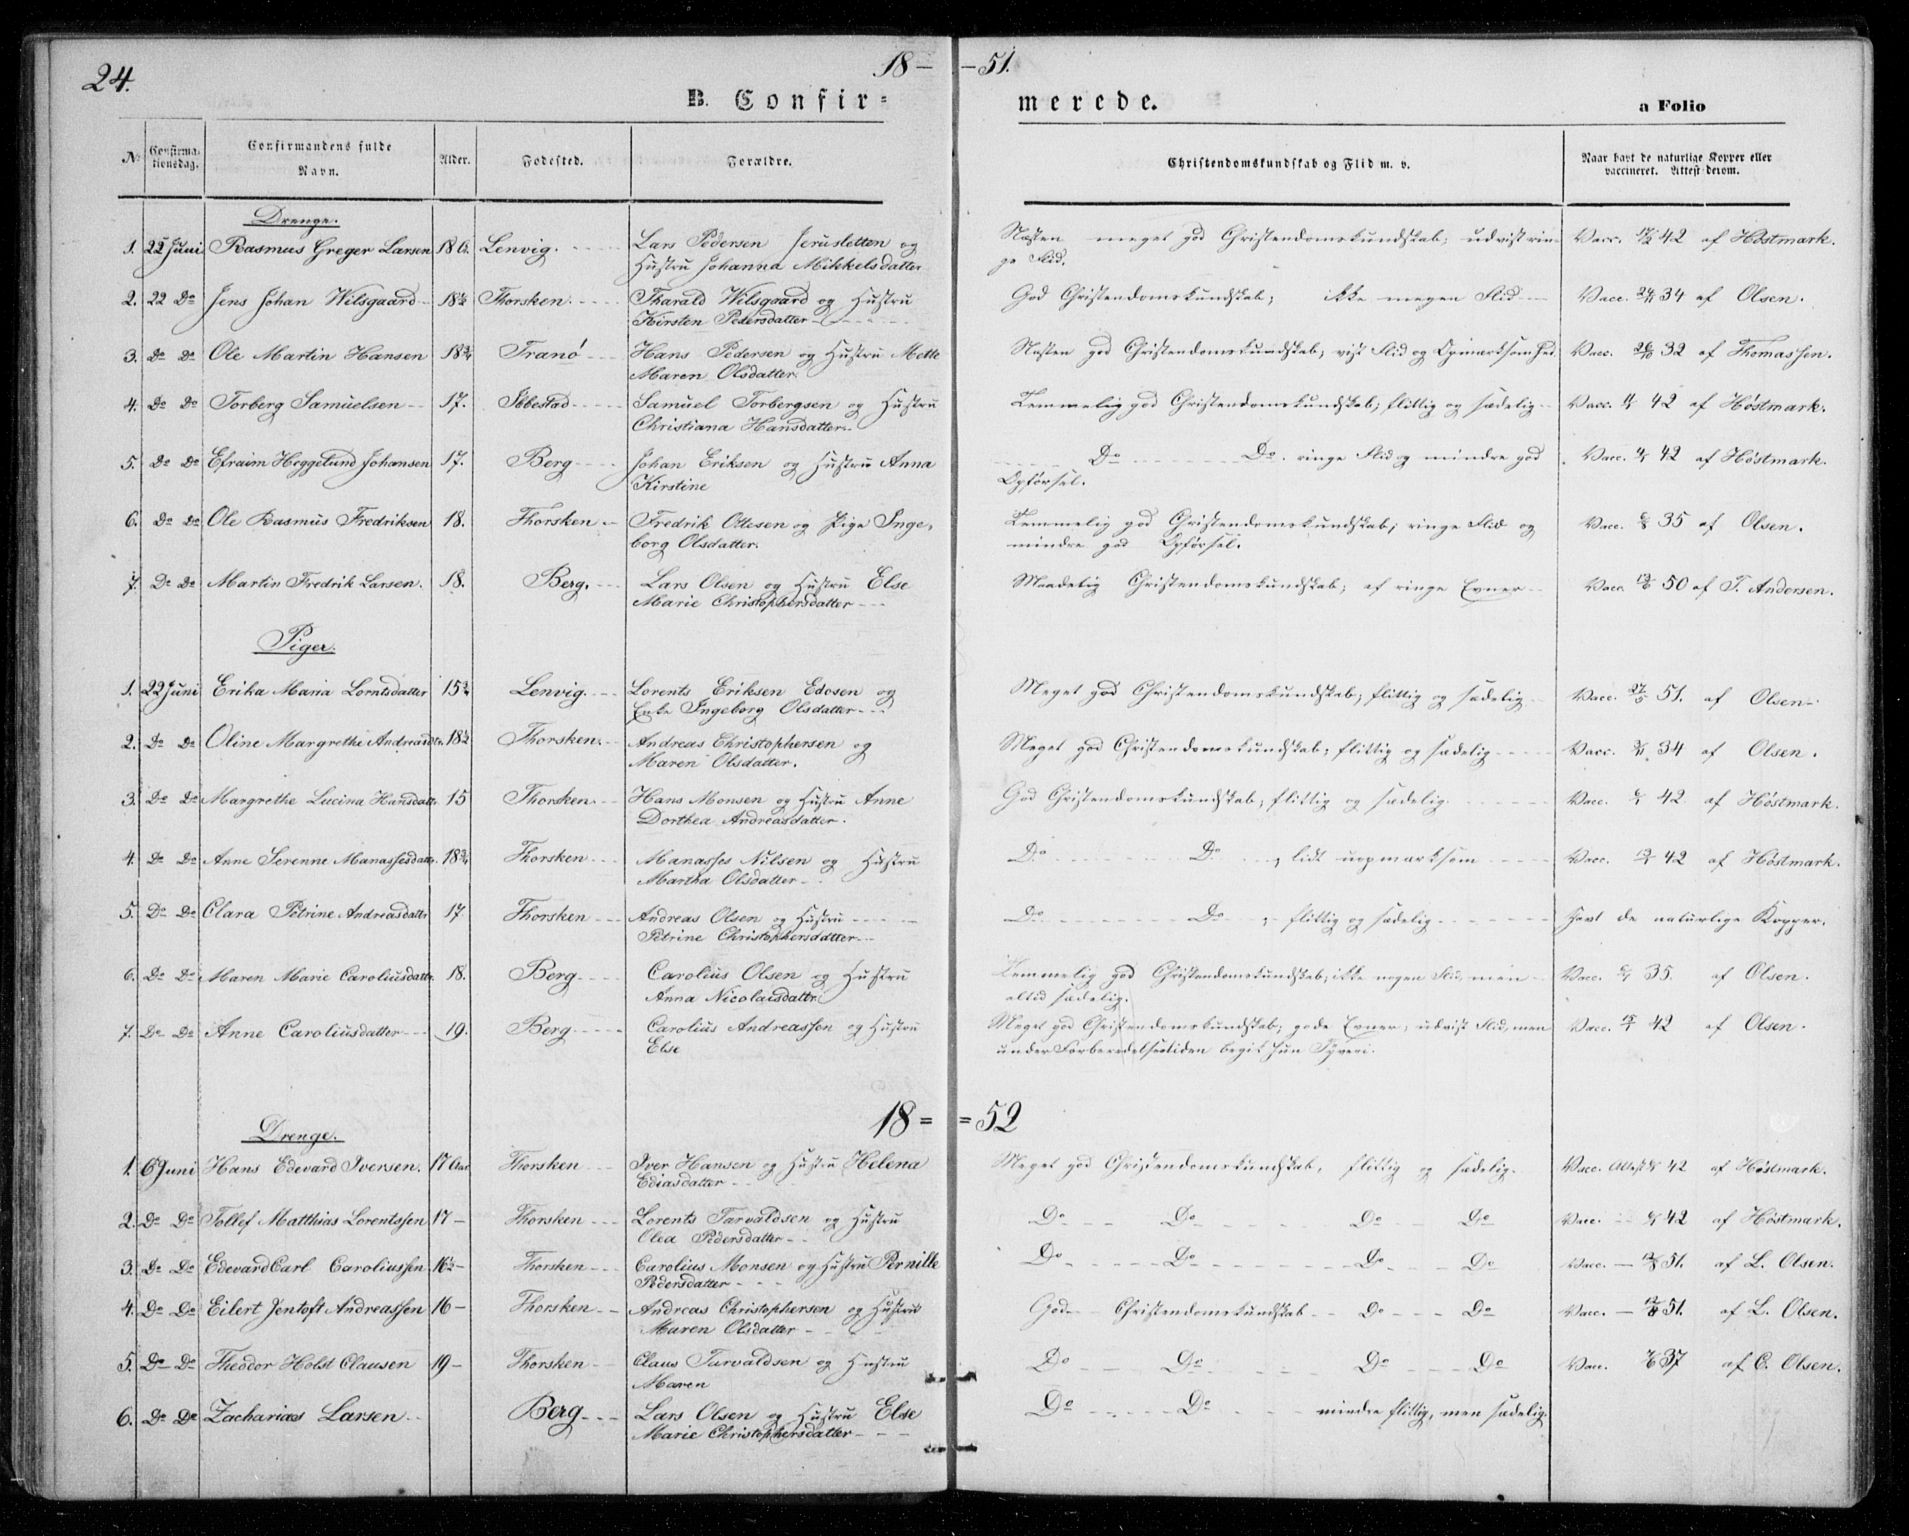 24.
18— —51.
B. Confir= merede.
a Folio
No Confirma-tionsdag. Confirmandens fulde Navn. Alder. Fødested. Forældre. Christendomskundskab og Flid m. v. Naar havt de naturlige Kopper eller vaccineret. Attest derom.
Drenge.
1. 22 Juni Rasmus Greger Larsen Lenvig. Lars Pedersen Jerusletten og Næsten meget god Christendomskundskab; udvist rin- Vacc. 42 af Høstmark.
Hustru Johanna Mikkelsdatter ge Flid.
2. 22 Do Jens Johan Wilsgaard 18½ Thorsken. Tharald Wilsgaard og Hustru God Christendomskundskab; ikke megen Flid Vacc. 34 af Olsen.
Kirsten Pedersdatter
3. Do Do Ole Martin Hansen 18¾ Tranø Hans Pedersen og Hustru Mette Næsten god Christendomskundskab; vist Flid og Opmærksomhed Vacc. 32 af Thomassen.
Maren Olsdatter.
4. Do Do Torberg Samuelsen 17. Ibbestad Samuel Torbergsen og Hustru Temmelig god Christendomskundskab; flittig og sædelig Vacc. 42 af Høstmark.
Christiana Hansdatter.
5. Do Do Efraim Heggelund Johansen 17. Berg Johan Eriksen og Hustru Anna Do Do. ringe Flid og mindre god Vacc. 42 af Høstmark.
Kirstine Opførsel.
6. Do Do Ole Rasmus Fredriksen 18. Thorsken Fredrik Ottesen og Pige Inge- Temmelig god Christendomskundskab; ringe Flid og Vacc. 35 af Olsen.
borg Olsdatter. mindre god Opførsel.
7. Do Do Martin Fredrik Larsen. 18. Berg. Lars Olsen og Hustru Else Maadelig Christendomskundskab; af ringe Evner Vacc. 50 af T. Andersen.
Marie Christophersdatter
Piger.
1. 22 Juni Erika Maria Lorntsdatter 15¾ Lenvig. Lorents Eriksen Edosen og Meget god Christendomskundskab; flittig og sædelig Vacc. 27/5 51. af Olsen
Enke Ingeborg Olsdatter
2. Do Do Oline Margrethe Andreasdtr. 18½ Thorsken. Andreas Christophersen og Meget god Christendomskundskab; flittig og sædelig Vacc. 34 af Olsen.
Maren Olsdatter.
3. Do Do Margrethe Lucina Hansdatr. 15 Thorsken. Hans Monsen og Hustru Anne God Christendomskundskab, flittig og sædelig. Vacc. 42 af Høstmark.
Dorthea Andreasdatter.
4. Do Do Anne Serenne Manassesdatr. 18¾ Thorsken Manasses Nilsen og Hustru Do Do , lidt uopmærksom Vacc. 42 af Høstmark.
Martha Olsdatter
5. Do Do Clara Petrine Andreasdatr 17 Thorsken Andreas Olsen og Hustru Do Do flittig og sædelig Havt de naturlige Kopper.
Petrine Christophersdatter
6. Do Do Maren Marie Caroliusdatr. 18. Berg Carolius Olsen og Hustru Temmelig god Christendomskundskab; ikke nogen Flid, men Vacc. 35. af Olsen.
Anna Nicolaisdatr. altid sædelig.
7. Do Do Anne Caroliusdatter 19. Berg Carolius Andreassen og Hustru Meget god Christendomskundskab; gode Evner; udvist Flid, men Vacc. 42 af Olsen.
Else under Forberedelsestiden begik hun Tyveri.
18= =52
Drenge.
1. 6 Juni Hans Edevard Iversen. 17 Aar Thorsken Iver Hansen og Hustru Helena Meget god Christendomskundskab, flittig og sædelig. Vacc. Attest 42 af Høstmark.
Ediasdatter
2. Do Do Tollef Matthias Lorentssen 17 — Thorsken Lorents Tarvaldsen og Hustru Do Do Do Do Vacc. 42 af Høstmark.
Olea Pedersdatter
3. Do Do Edevard Carl Caroliussen 16½ — Thorsken Carolius Monsen og Hustru Pernille Do Do Do Do Vacc. — 51. af L. Olsen.
Pedersdatter
4. Do Do Eilert Jentoft Andreassen 16 — Thorsken Andreas Christophersen og Hustru God Christendomskundskab Do Do Vacc. — 51. af L. Olsen.
Maren Olsdatter
5. Do Do Theodor Holst Clausen 19 — Thorsken Claus Tarvaldsen og Hustru Do Do Do Do Vacc. 37 af C. Olsen.
Maren
6. Do Do Zacharias Larsen Berg Lars Olsen og Hustru Else Do Do mindre flittig, men sædelig.
Marie Christophersdatter